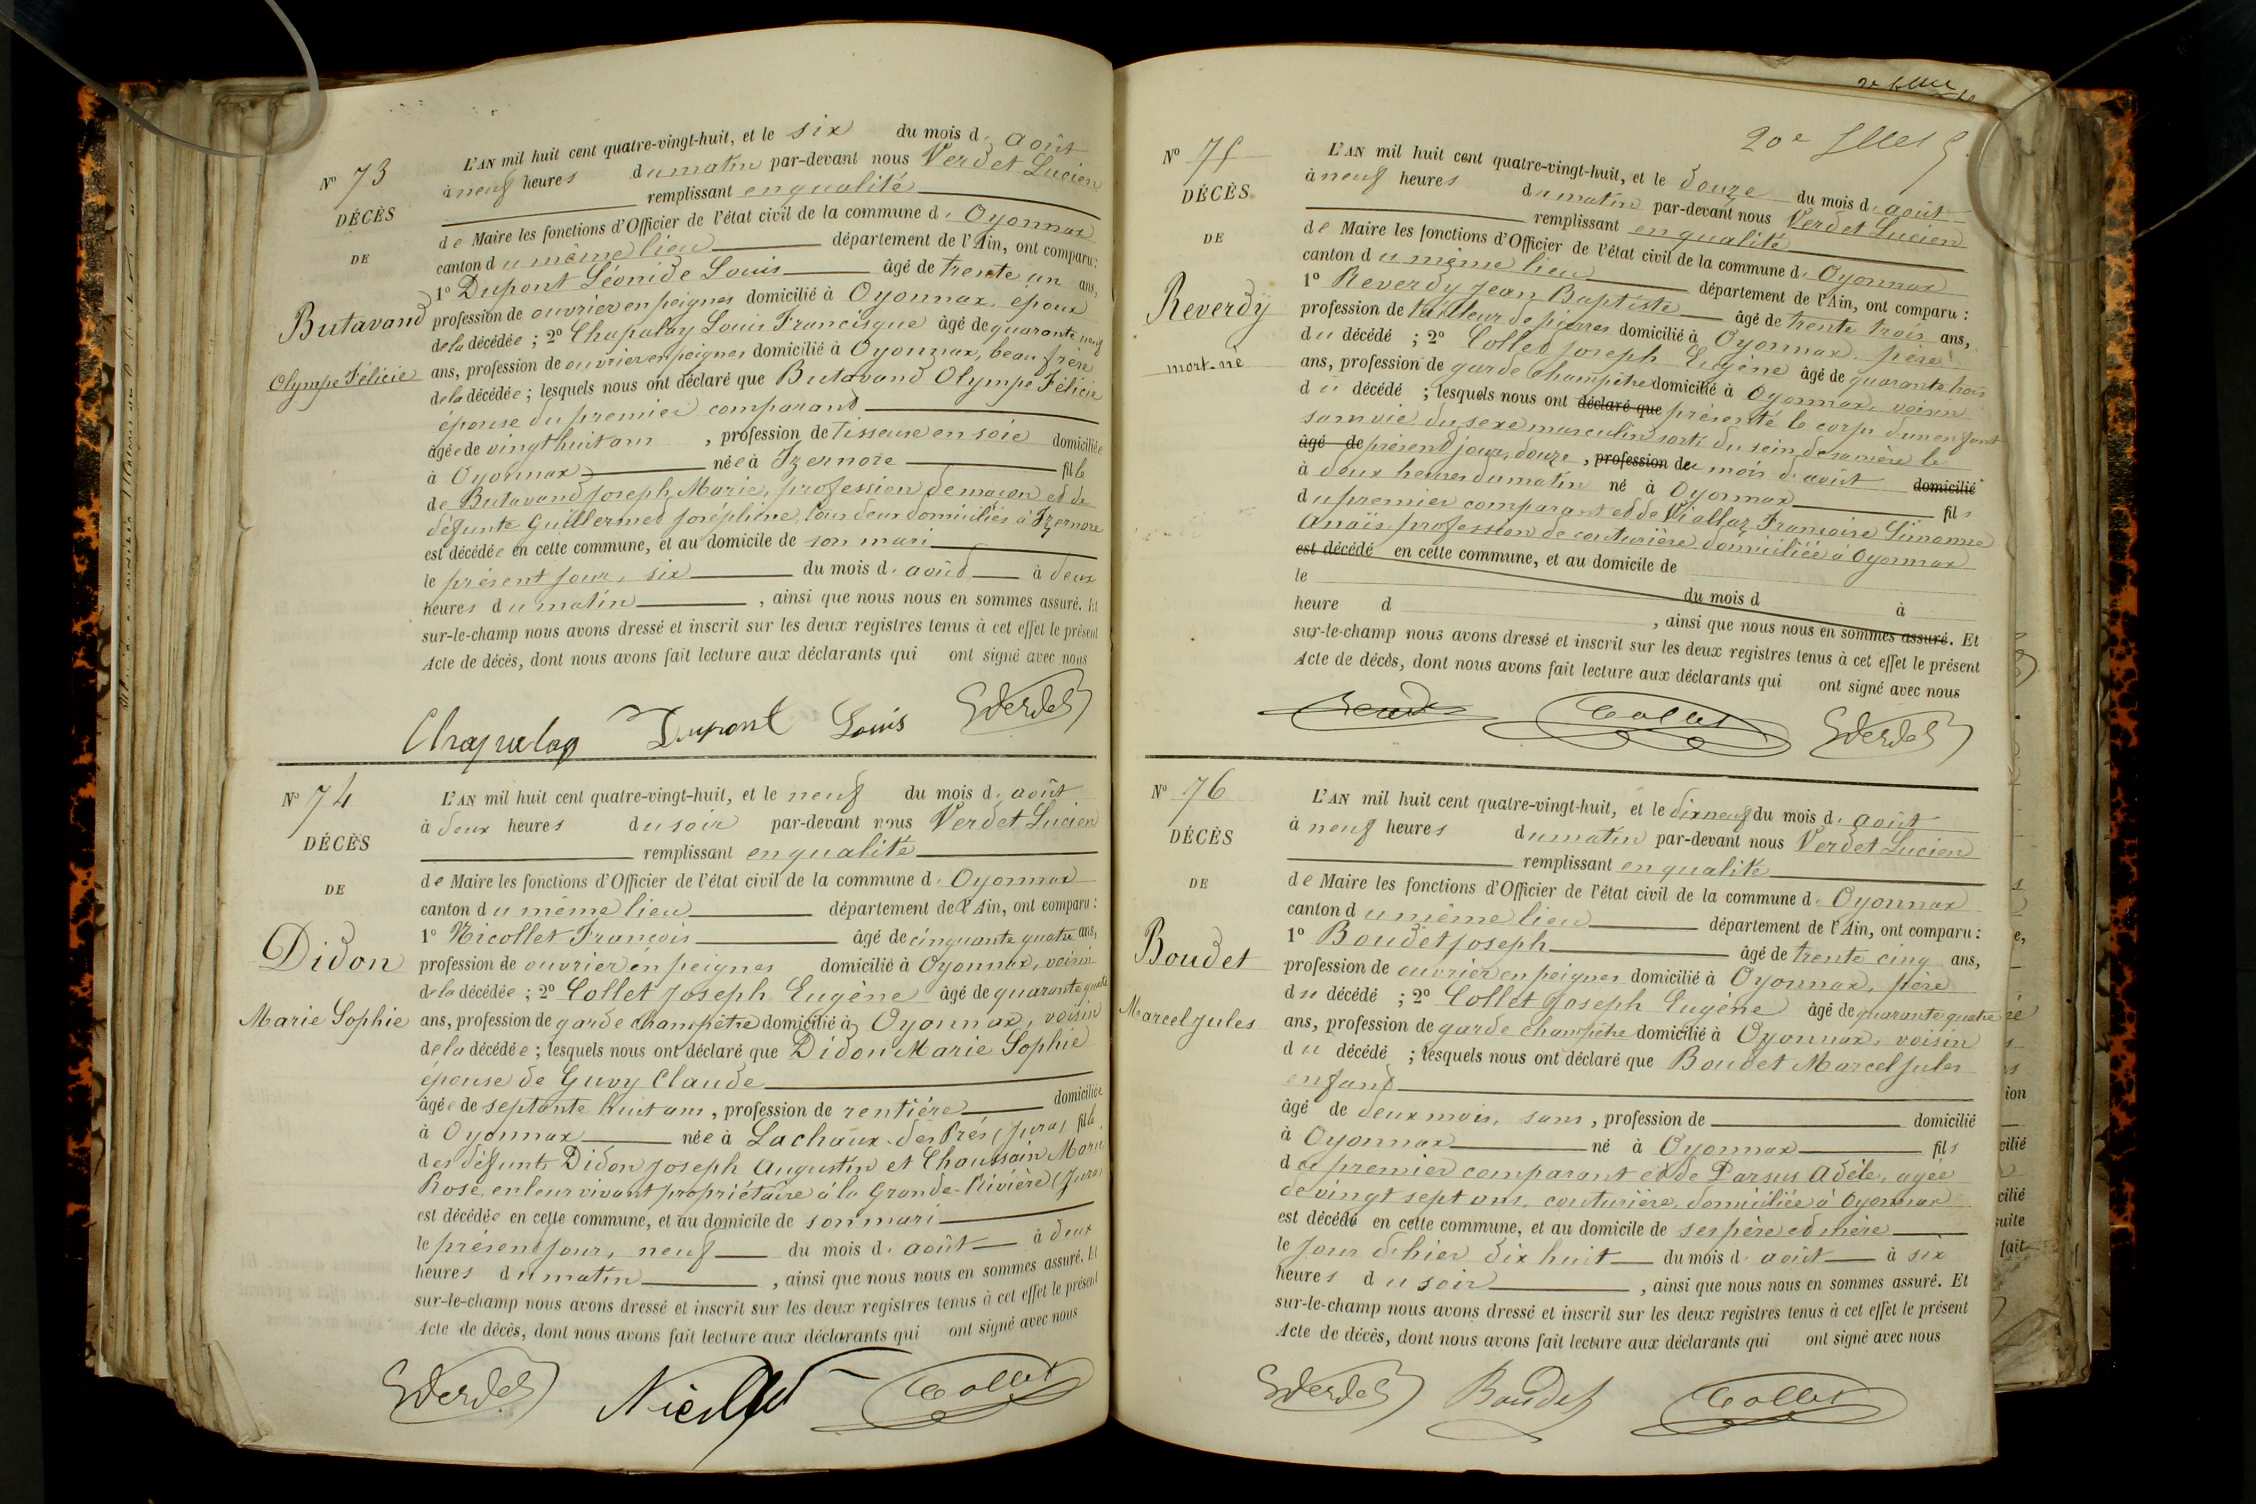 N° 73
DÉCÈS
DE
Butavand
Olympe Félicie
L'AN mil huit cent quatre-vingt-huit, et le six du mois d'août
à neuf heures du matin par-devant nous Verdet Lucien
remplissant en qualité
de Maire les fonctions d'Officier de l'état civil de la commune d'Oyonnax
canton du même lieu département de l'Ain, ont comparu:
1° Dupont Léonide Louis âgé de trente un ans,
profession de ouvrier en peignes domicilié à Oyonnax, époux
de la décédée ; 2° Chapalay Louis Francisque âgé de quarante neuf
ans, profession de ouvrier en peignes domicilié à Oyonnax, beau frère
de la décédée ; lesquels nous ont déclaré que Butavand Olympe Félicie
épouse du premier comparant
âgée de vingt huit ans , profession de tisseuse en soie domiciliée
à Oyonnax née à Izernore fille
de Butavand Joseph Marie, profession de maçon et de
défunte Guillermet Joséphine, tous deux domiciliés à Izernore
est décédée en cette commune, et au domicile de son mari
le présent jour, six du mois d'août à deux
heures du matin , ainsi que nous nous en sommes assuré. Et
sur-le-champ nous avons dressé et inscrit sur les deux registres tenus à cet effet le présent
Acte de décès, dont nous avons fait lecture aux déclarants qui ont signé avec nous
Chapalay Dupont Louis Verdet
N° 74
DÉCÈS
DE
Didon
Marie Sophie
L'AN mil huit cent quatre-vingt-huit, et le neuf du mois d'août
à deux heures du soir par-devant nous Verdet Lucien
remplissant en qualité
de Maire les fonctions d'Officier de l'état civil de la commune d'Oyonnax
canton du même lieu département de l'Ain, ont comparu :
1° Nicollet François âgé de cinquante quatre ans,
profession de ouvrier en peignes domicilié à Oyonnax, voisin
de la décédée ; 2° Collet Joseph Eugène âgé de quarante quatre
ans, profession de garde champêtre domicilié à Oyonnax, voisin
de la décédée ; lesquels nous ont déclaré que Didon Marie Sophie
épouse de Guvy Claude
âgée de septante huit ans , profession de rentière domiciliée
à Oyonnax née à Lachaux-des Prés (Jura) fille
des défunts Didon Joseph Augustin et Chaussain Marie
Rose, en leur vivant propriétaire à la Grande-Rivière (Jura)
est décédée en cette commune, et au domicile de son mari
le présent jour, neuf du mois d'août à deux
heures du matin , ainsi que nous nous en sommes assuré. Et
sur-le-champ nous avons dressé et inscrit sur les deux registres tenus à cet effet le présent
Acte de décès, dont nous avons fait lecture aux déclarants qui ont signé avec nous
Verdet Nicollet Collet
20e
N° 75
DÉCÈS
DE
Reverdy
mort-né
L'AN mil huit cent quatre-vingt-huit, et le douze du mois d'août
à neuf heures du matin par-devant nous Verdet Lucien
remplissant en qualité
de Maire les fonctions d'Officier de l'état civil de la commune d'Oyonnax
canton du même lieu département de l'Ain, ont comparu :
1° Reverdy Jean Baptiste âgé de trente trois ans,
profession de tailleur de pierres domicilié à Oyonnax, père
du décédé ; 2° Collet Joseph Eugène âgé de quarante trois
ans, profession de garde champêtre domicilié à Oyonnax, voisin
du décédé ; lesquels nous ont déclaré que présenté le corps d'un enfant
sans vie du sexe masculin sorti du sein de sa mère le
âgé de présent jour, douze , profession du mois d'août domicilié
à deux heures du matin né à Oyonnax fils
du premier comparant et de Viallaz Françoise
Anaïs profession de couturière domiciliée à Oyonnax
est décédé en cette commune, et au domicile de
le du mois d à
heure d , ainsi que nous nous en sommes assuré. Et
sur-le-champ nous avons dressé et inscrit sur les deux registres tenus à cet effet le présent
Acte de décès, dont nous avons fait lecture aux déclarants qui ont signé avec nous
Collet Verdet
N° 76
DÉCÈS
DE
Boudet
Marcel Jules
L'AN mil huit cent quatre-vingt-huit, et le dix neuf du mois d'août
à neuf heures du matin par-devant nous Verdet Lucien
remplissant en qualité
de Maire les fonctions d'Officier de l'état civil de la commune d'Oyonnax
canton du même lieu département de l'Ain, ont comparu :
1° Boudet Joseph âgé de trente cinq ans,
profession de ouvrier en peignes domicilié à Oyonnax, père
du décédé ; 2° Collet Joseph Eugène âgé de quarante quatre
ans, profession de garde champêtre domicilié à Oyonnax, voisin
du décédé ; lesquels nous ont déclaré que Boudet Marcel Jules
enfant
âgé de deux mois, sans , profession de domicilié
à Oyonnax né à Oyonnax fils
du premier comparant et de Parsus Adèle, agée
de vingt sept ans, couturière, domiciliée à Oyonnax
est décédé en cette commune, et au domicile de ses père et mère
le jour d'hier dix huit du mois d'août à six
heures du soir , ainsi que nous nous en sommes assuré. Et
sur-le-champ nous avons dressé et inscrit sur les deux registres tenus à cet effet le présent
Acte de décès, dont nous avons fait lecture aux déclarants qui ont signé avec nous
Verdet Boudet Collet